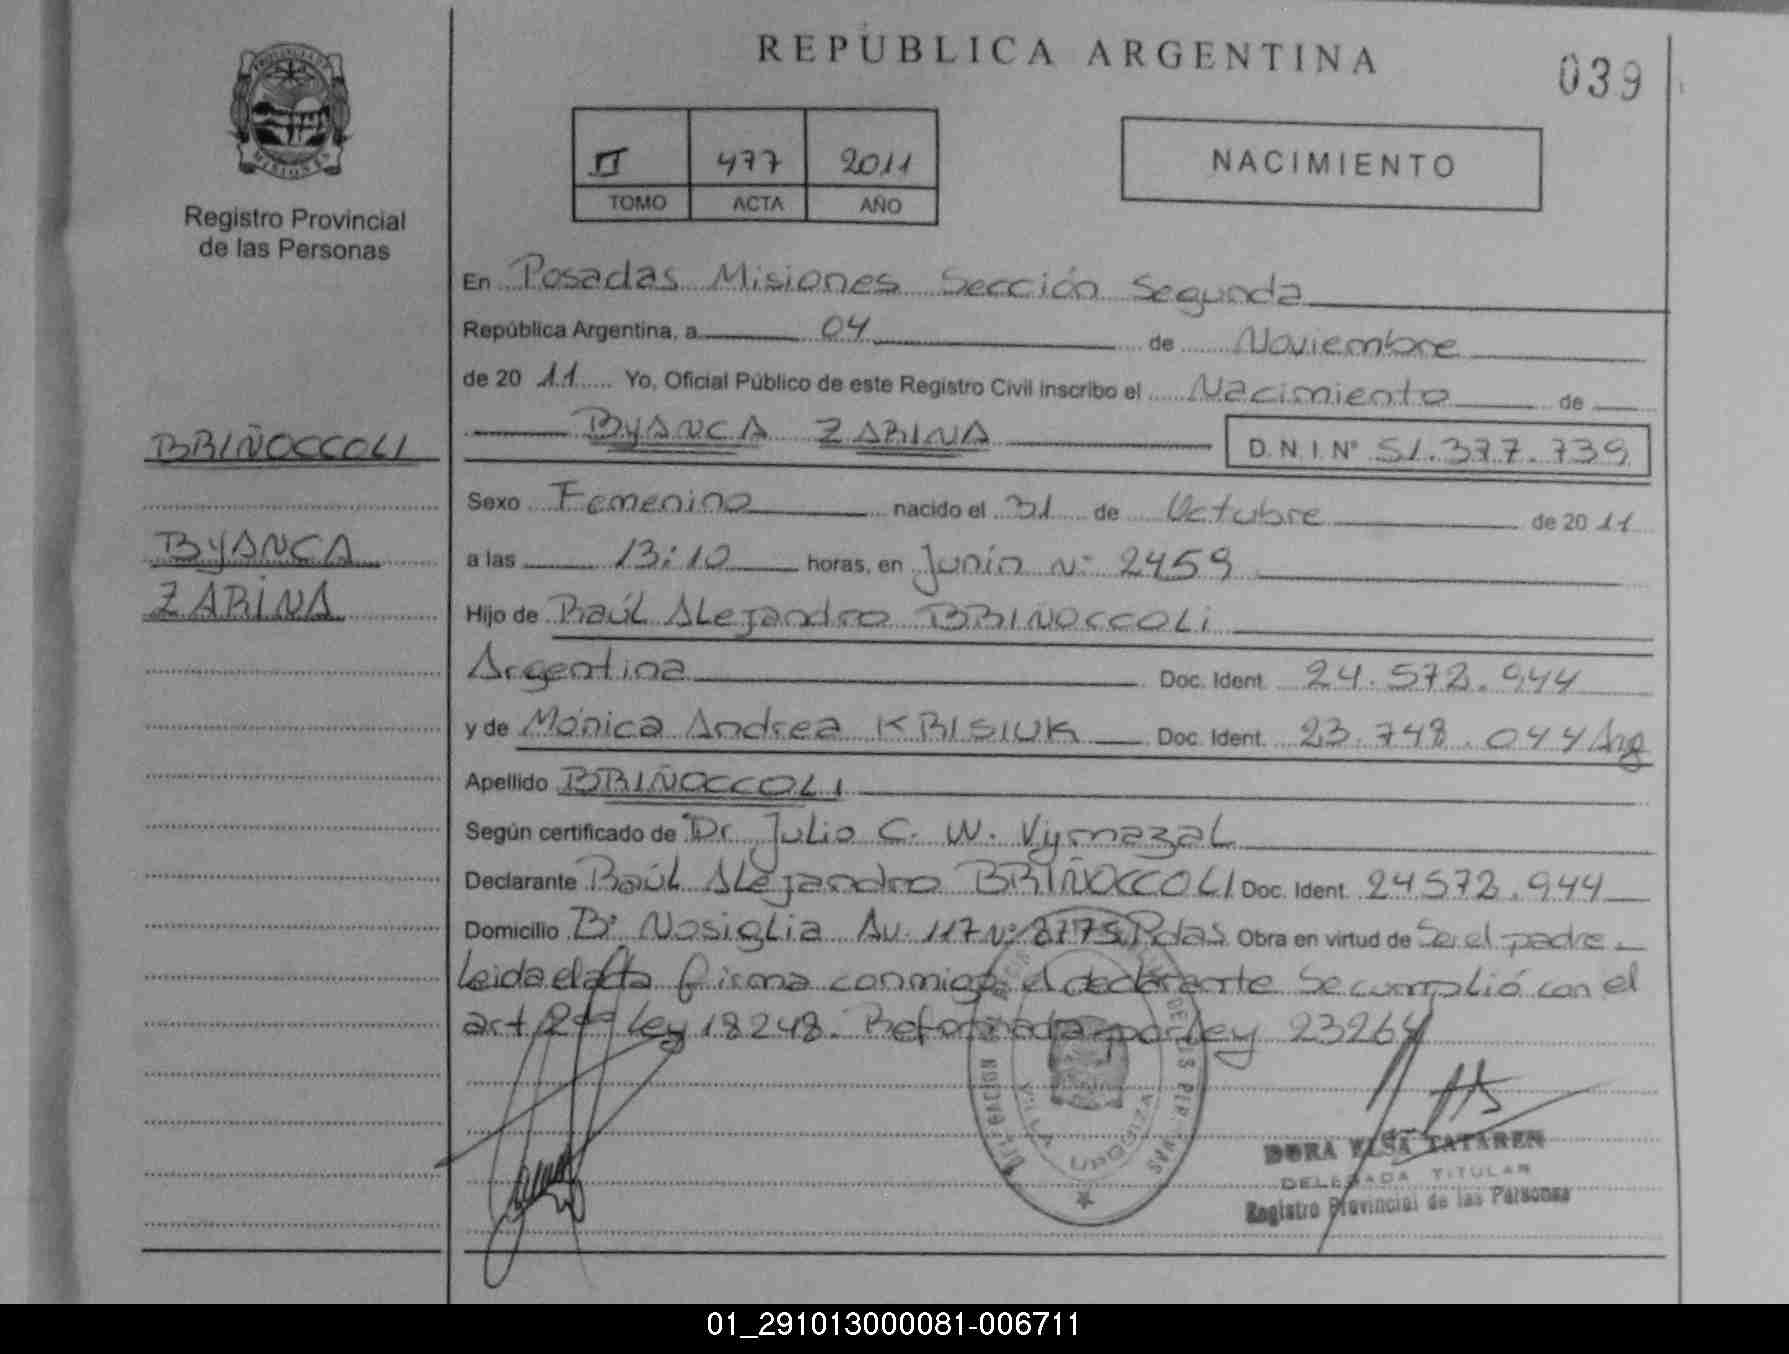 REPÚBLICA ARGENTINA
039
PROVINCIA DE
MISIONES
Registro Provincial
de las Personas
II 477 2011
TOMO ACTA AÑO
NACIMIENTO
En Posadas Misiones Sección Segunda
República Argentina, a 04 de Noviembre
de 20 11 Yo, Oficial Público de este Registro Civil inscribo el Nacimiento de
BYANCA ZARINA D.N.I.Nº 51.377.739
BRIÑOCCOLI
BYANCA
ZARINA
Sexo Femenino nacido el 31 de Octubre de 20 11
a las 13:10 horas, en Junín Nº 2459
Hijo de Raúl Alejandro BRIÑOCCOLI
Argentina Doc. Ident. 24.572.944
y de Mónica Andrea KRISIUK Doc. Ident. 23.748.044 Arg
Apellido BRIÑOCCOLI
Según certificado de Dr. Julio C. W. Vymazal
Declarante Raúl Alejandro BRIÑOCCOLI Doc. Ident. 24572.944
Domicilio Bº Nosiglia Av. 117 Nº 8775 Pdas Obra en virtud de Ser el padre
Leida el acta firma conmigo el declarante Se cumplió con el
art 2do Ley 18248. Reformada por Ley 23264
VILLA URQUIZA
DORA ELSA TATAREN
DELEGADA TITULAR
Registro Provincial de las Personas
01_291013000081-006711